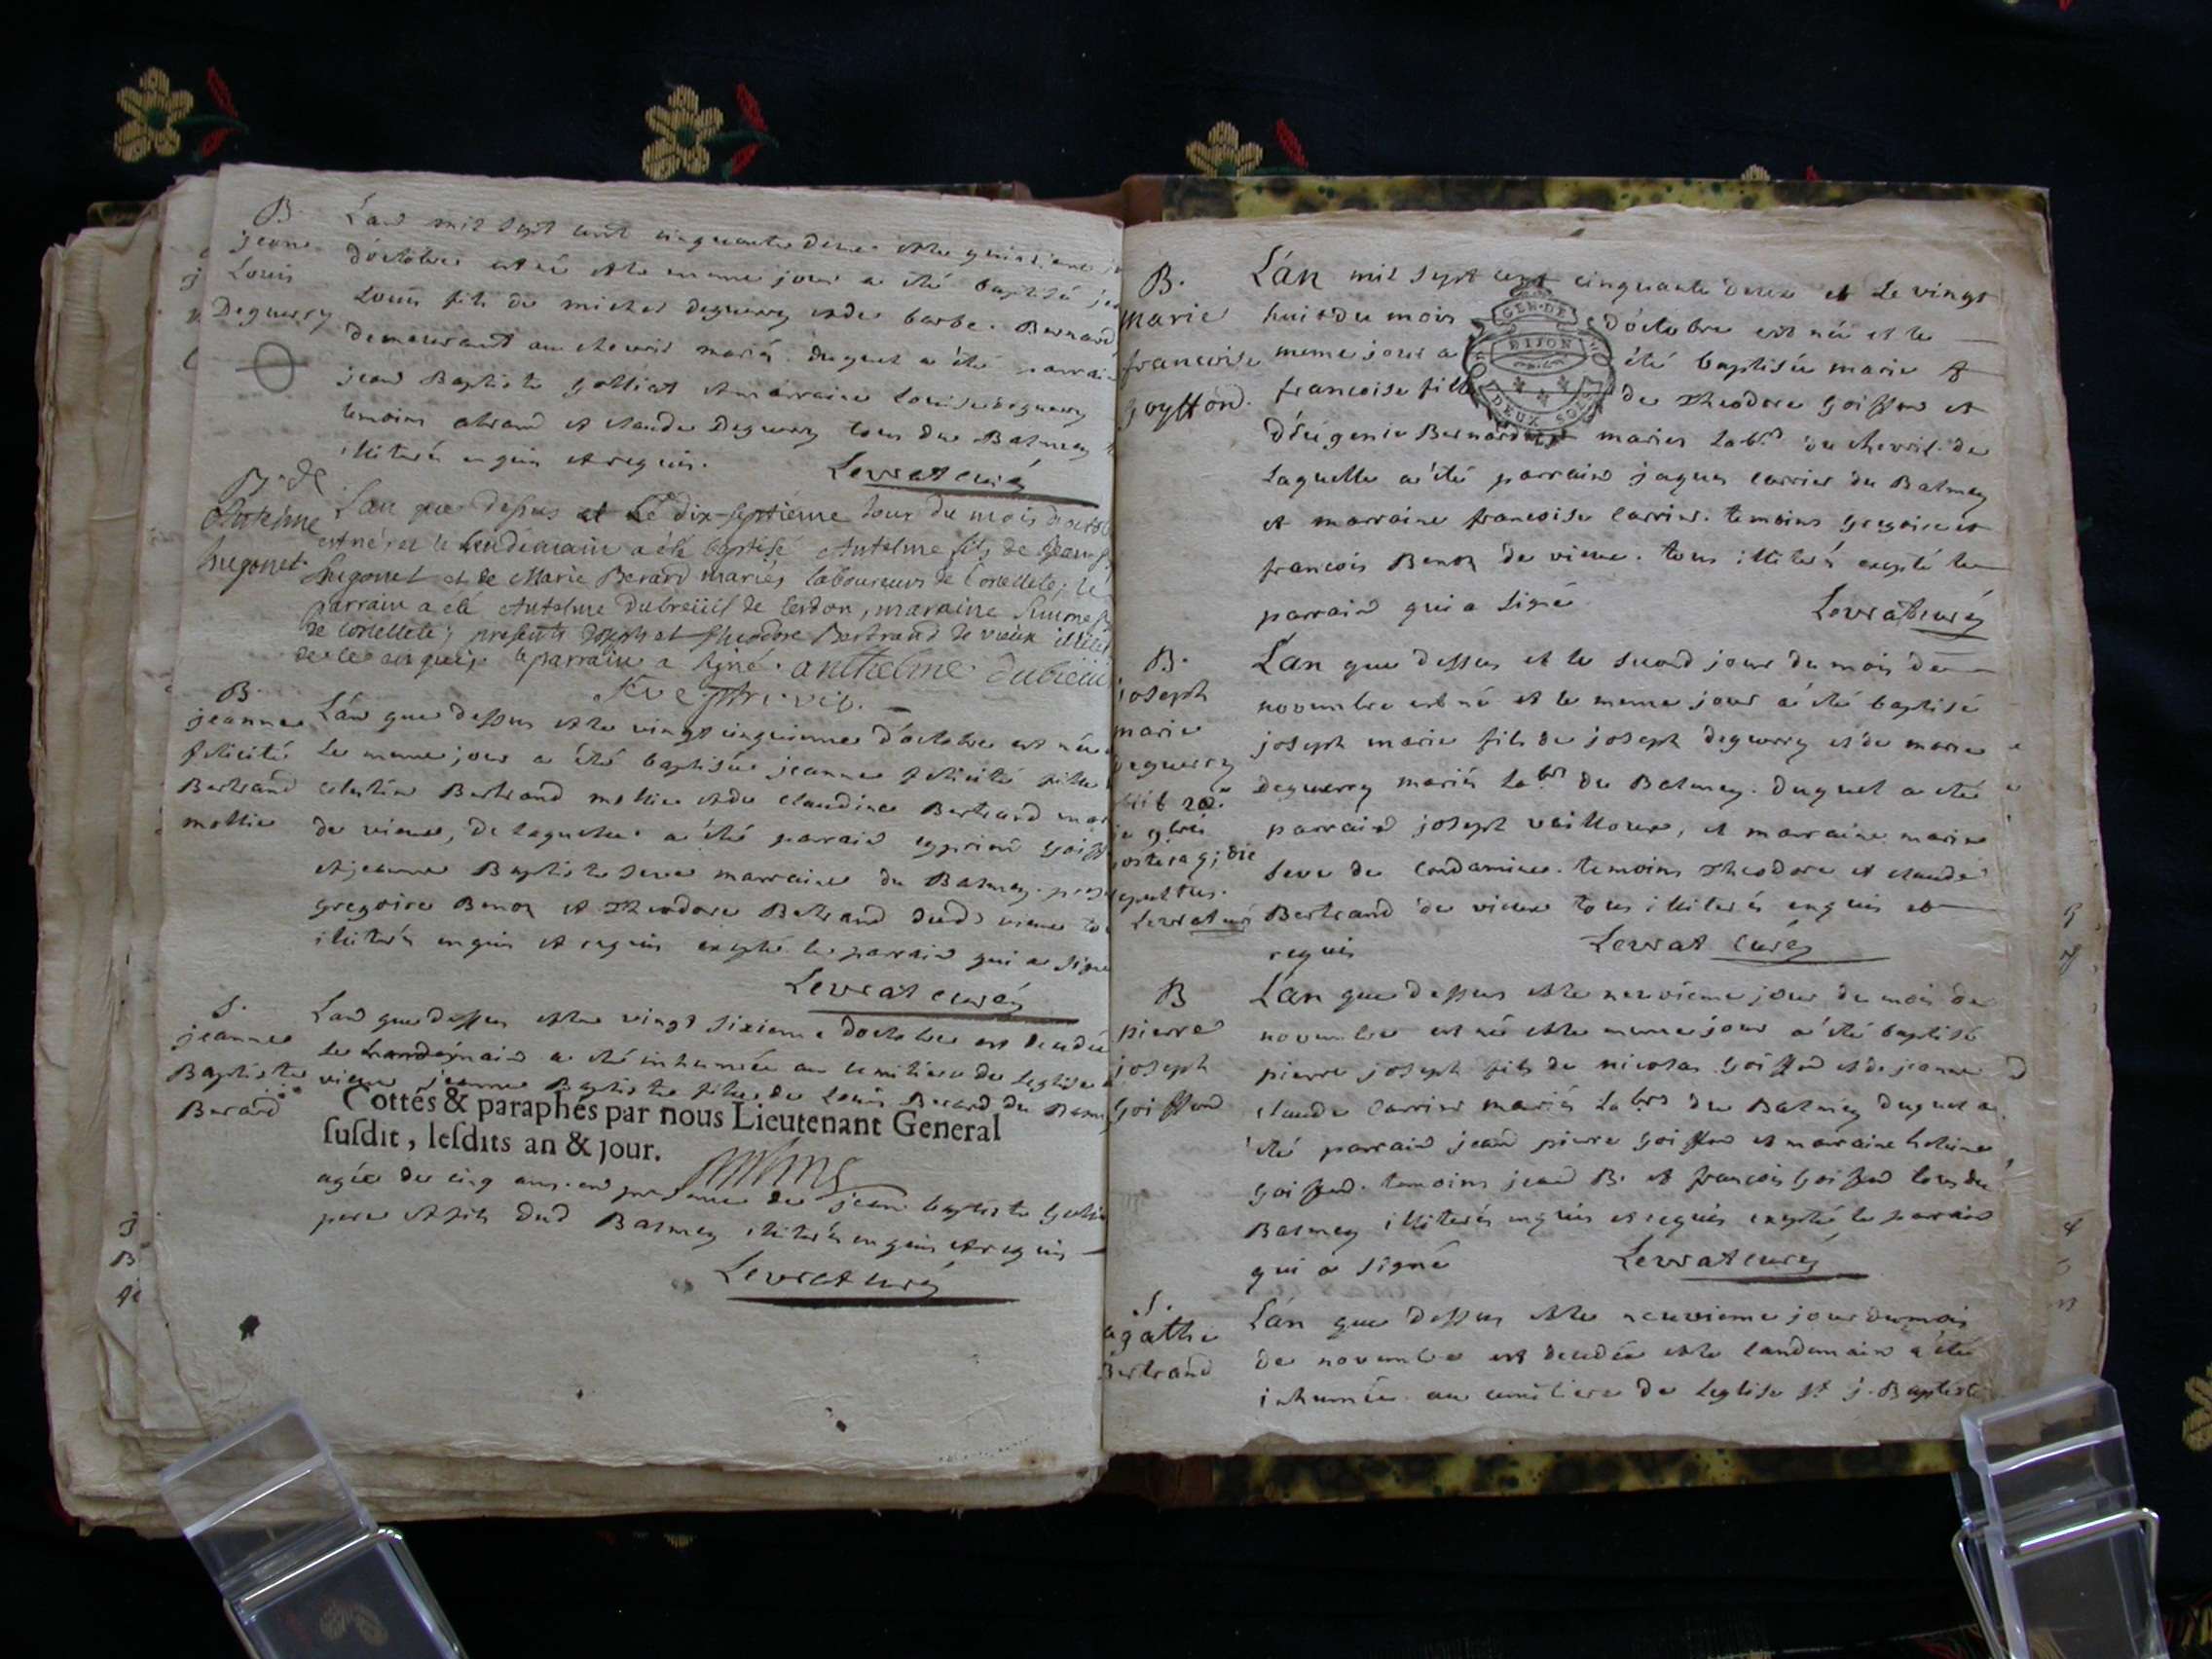 B.
jeane
Louis
Deguerry
Lan mil sept cent cinquante deux et le quinzieme
d'octobre est né et le meme jour a été baptisé
Louis fils de michel deguerry et de barbe Bernard
demeurant au chevril mariés. duquel a été parrain
jean Baptiste golliat et marraine Louise deguerry
temoins et claude Deguerry tous du Balmey
illiterés enquis et requis. Levrat curé
B. de
Antelme
hugonet
Lan que dessus et Le dix-septieme jour du mois d'octob
est né et le lendemain a été baptisé Antelme fils de Jean
hugonet et de Marie Berard mariés laboureurs de Corcellete; le
parrain a été Antelme Dubreüil de Cerdon, maraine
de Corcellete; presents Joseph et Theodore Bertrand de vieux illit
de ce enquis le parrain a signé. anthelme dubreiu
B.
jeanne
felicité
Bertrand
mollie
Lan que dessus et le vingt cinquieme d'octobre est née
le meme jour a été baptisée jeanne felicité fille
celestin Bertrand mollie et de claudine Bertrand mar
de vieux, de laquelle a été parrain cyprien goiff
et jeanne Baptiste seve marraine du Balmey.
gregoire Benoz et Theodore Betrand dud vieux to
illiterés enquis et requis excepté le parrain qui a signé
Levrat curé
S.
jeanne
Baptiste
Berard
Lan que dessus et le vingt sixieme d'octobre est decedée
le landemain a été inhumée au cemitiere de leglise
vieux jeanne Baptiste fille de Louis Berard du Balm
Cottés & paraphés par nous Lieutenant General
susdit, lesdits an & jour.
agée de cinq ans. en presence de jean baptiste
pere et fils dud Balmey illiterés enquis et requis
Levrat curé
B.
marie
francoise
goyffond.
L'an mil sept cent cinquante deux et le vingt
huit du mois d'octobre est née et le
meme jour a été baptisée marie
francoise fille de Theodore goiffon et
d'eugenie Bernard mariés lab.rs du chevril. de
laquelle a été parrain jaques carrier du Balmey
et marraine francoise carrier. temoins gregoire et
francois Benoz de vieux. tous illiterés excepté le
parrain qui a signé Levrat curé
GEN. DE
DIJON
DEUX SOLS
B.
joseph
marie
deguerry
Levrat curé
Lan que dessus et le second jour du mois de
novembre est né et le meme jour a été baptisé
joseph marie fils de joseph deguerry et de marie
deguerry mariés la.brs du Balmey. duquel a été
parrain joseph vailloux, et marraine marie
seve de Condamine. temoins Theodore et claude
Bertrand de vieux tous illiterés enquis et
requis Levrat curé
B
pierre
joseph
goiffond
L'an que dessus et le neuvieme jour du mois de
novembre est né et le meme jour a été baptisé
pierre joseph fils de nicolas goiffod et de jeanne
claude carrier mariés la.brs du Balmey duquel a
été parrain jean pierre goiffon et marraine helaine
goiffod. temoins jean B. et francois goiffod tous du
Balmey illiterés enquis et requis excepté le parrain
qui a signé Levrat curé
S.
agathe
Bertrand
L'an que dessus et le neuvieme jour du mois
de novembre est decedée et le landemain a été
inhumée au cemitiere de leglise St j. Baptiste